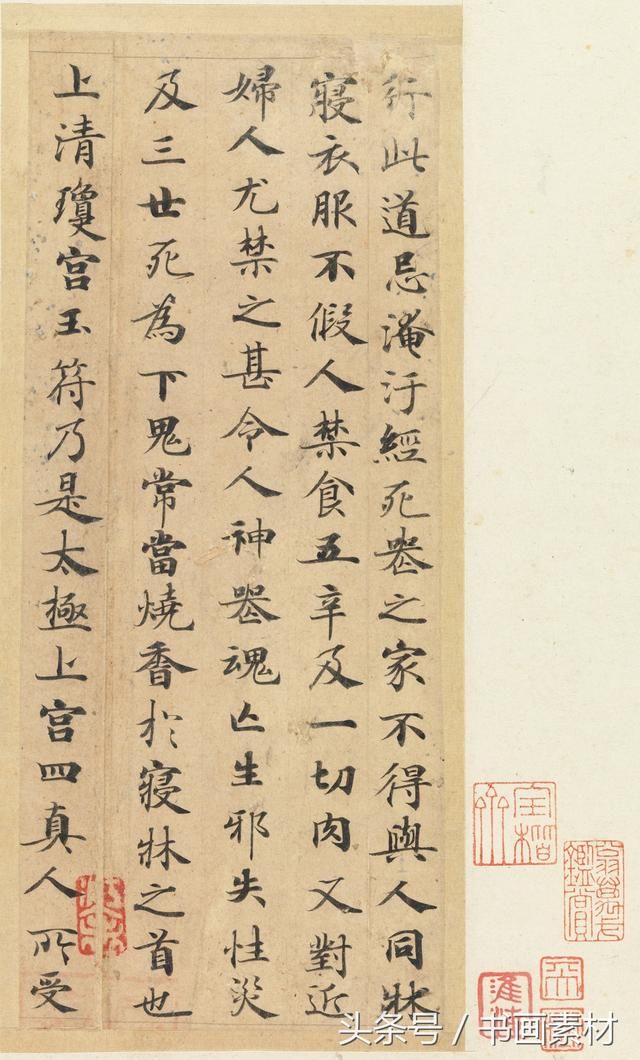 行此道忌淹汙經死喪之家不得與人同牀
寢衣服不假人禁食五辛及一切肉又對近
婦人尤禁之甚令人神喪魂亡生邪失性災
及三世死為下鬼常當燒香於寢牀之首也
上清瓊宮玉符乃是太極上宮四真人所受
头条号 / 书画素材